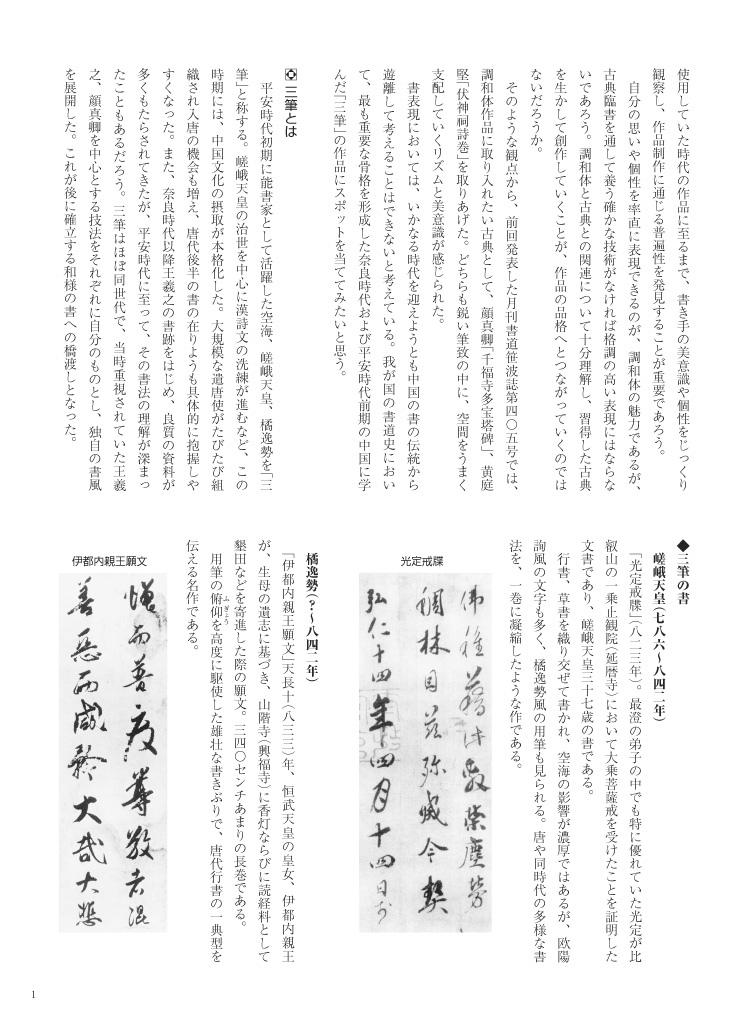 使用していた時代の作品に至るまで、書き手の美意識や個性をじっくり
観察し、作品制作に通じる普遍性を発見することが重要であろう。
自分の思いや個性を率直に表現できるのが、調和体の魅力であるが、
古典臨書を通して養う確かな技術がなければ格調の高い表現にはならな
いであろう。調和体と古典との関連について十分理解し、習得した古典
を生かして創作していくことが、作品の品格へとつながっていくのでは
ないだろうか。
そのような観点から、前回発表した月刊書道笹波誌第四〇五号では、
調和体作品に取り入れたい古典として、顔真卿「千福寺多宝塔碑」、黄庭
堅「伏神祠詩巻」を取りあげた。どちらも鋭い筆致の中に、空間をうまく
支配していくリズムと美意識が感じられた。
書表現においては、いかなる時代を迎えようとも中国の書の伝統から
遊離して考えることはできないと考えている。我が国の書道史におい
て、最も重要な骨格を形成した奈良時代および平安時代前期の中国に学
んだ「三筆」の作品にスポットを当ててみたいと思う。
三筆とは
平安時代初期に能書家として活躍した空海、嵯峨天皇、橘逸勢を「三
筆」と称する。嵯峨天皇の治世を中心に漢詩文の洗練が進むなど、この
時期には、中国文化の摂取が本格化した。大規模な遣唐使がたびたび組
織され入唐の機会も増え、唐代後半の書の在りようも具体的に抱握しや
すくなった。また、奈良時代以降王羲之の書跡をはじめ、良質の資料が
多くもたらされてきたが、平安時代に至って、その書法の理解が深まっ
たこともあるだろう。三筆はほぼ同世代で、当時重視されていた王羲
之、顔真卿を中心とする技法をそれぞれに自分のものとし、独自の書風
を展開した。これが後に確立する和様の書への橋渡しとなった。
◆三筆の書
嵯峨天皇(七八六〜八四二年)
「光定戒牒」(八二三年)。最澄の弟子の中でも特に優れていた光定が比
叡山の一乗止観院(延暦寺)において大乗菩薩戒を受けたことを証明した
文書であり、嵯峨天皇三十七歳の書である。
行書、草書を織り交ぜて書かれ、空海の影響が濃厚ではあるが、欧陽
詢風の文字も多く、橘逸勢風の用筆も見られる。唐や同時代の多様な書
法を、一巻に凝縮したような作である。
光定戒牒
弘仁十四年四月十四日
橘逸勢(？〜八四二年)
「伊都内親王願文」天長十(八三三)年、恒武天皇の皇女、伊都内親王
が、生母の遺志に基づき、山階寺(興福寺)に香灯ならびに読経料として
墾田などを寄進した際の願文。三四〇センチあまりの長巻である。
用筆の俯仰を高度に駆使した雄壮な書きぶりで、唐代行書の一典型を
ふぎょう
伝える名作である。
伊都内親王願文
而普度尊敬
善悪而咸 大哉大悲
1